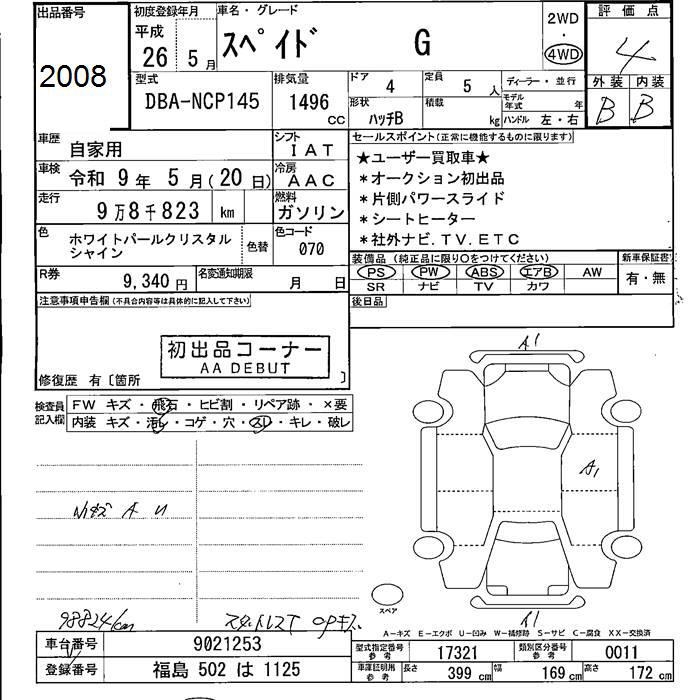 出品番号
2008
初度登録年月
平成
26 5月
車名・グレード
スペイド G
2WD
・
4WD
評価点
4
外装 内装
B B
型式
DBA-NCP145
排気量
1496 CC
ドア 4
定員 5 人
ディーラー・並行
形状 ハッチB
積載 kg
モデル年式 年
ハンドル 左・右
車歴 自家用
シフト IAT
車検 令和 9年 5月(20日)
冷房 AAC
走行 9万8千823 km
燃料 ガソリン
色 ホワイトパールクリスタルシャイン
色替
色コード 070
R券 9,340円
名変通知期限 月 日
セールスポイント(正常に機能するものに限ります)
★ユーザー買取車★
*オークション初出品
*片側パワースライド
*シートヒーター
*社外ナビ.TV.ETC
装備品(純正品に限り○をつけてください)
PS PW ABS エアB AW
SR ナビ TV カワ
新車保証書
有・無
後日品
注意事項申告欄(不具合内容等は具体的に記入して下さい)
初出品コーナー
AA DEBUT
修復歴 有〔箇所 〕
検査員記入欄
FW キズ・飛石・ヒビ割・リペア跡・×要
内装 キズ・汚レ・コゲ・穴・スレ・キレ・破レ
A1
A1
小キズ A U
98824km
スタッドレスT OPキズ
スペア
A1
A-キズ E-エクボ U-凹み W-補修跡 S-サビ C-腐食 XX-交換済
車台番号 9021253
登録番号 福島 502 は 1125
型式指定番号 参考 17321
類別区分番号 参考 0011
車庫証明用 参考
長さ 399 cm
幅 169 cm
高さ 172 cm